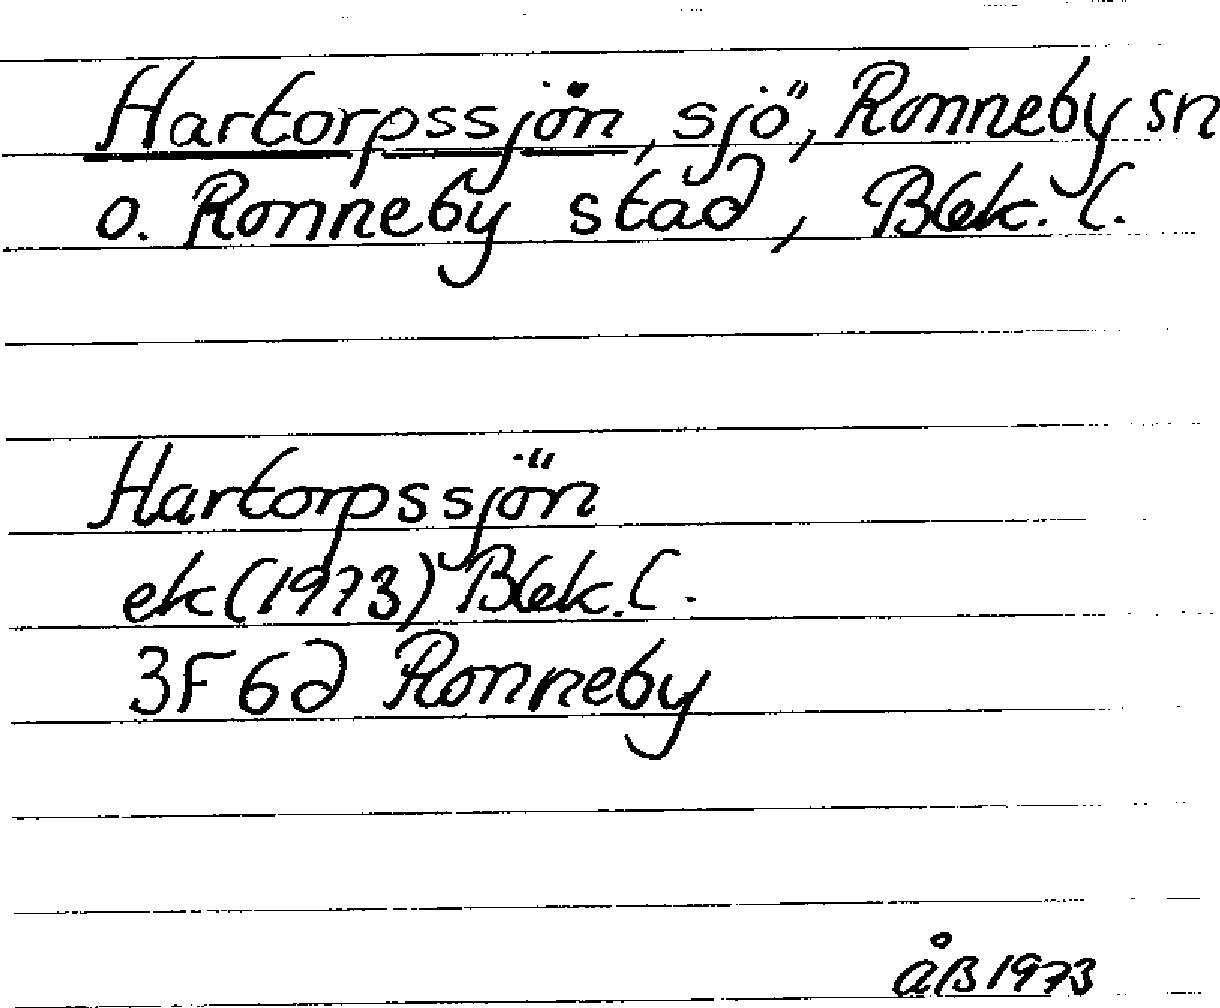 Hartorpssjön, sjö, Ronneby sn
o. Ronneby stad, Blek. l.
Hartorpssjön
ek (1973) Blek. l.
3F 6d Ronneby
åB 1973